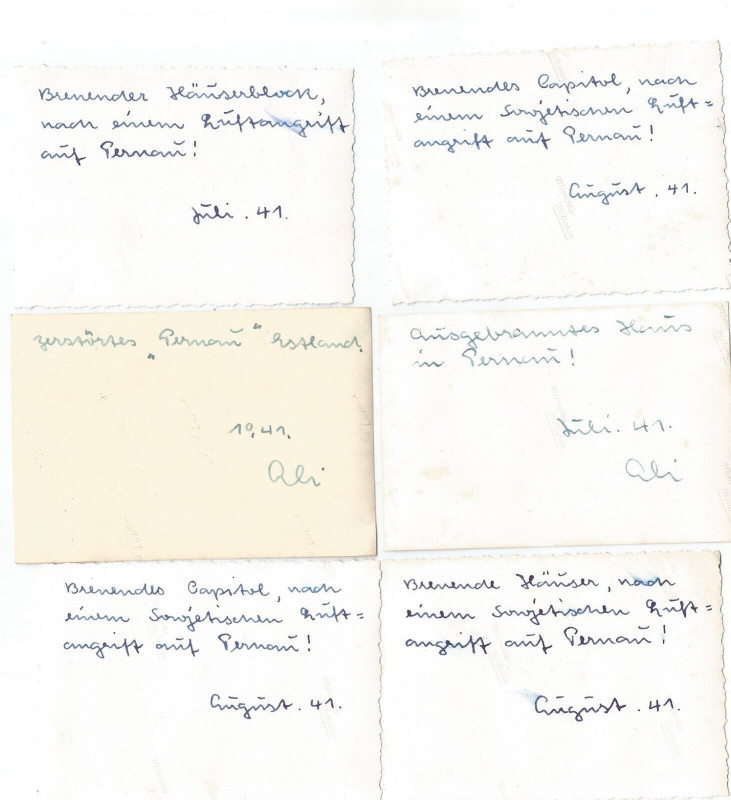 Brenender Häuserblock,
nach einem Luftangriff
auf Pernau!
Juli . 41.
Brenendes Capitol, nach
einem Sowjetischen Luft=
angriff auf Pernau!
August . 41.
zerstörtes „Pernau" Estland.
10.41.
Ali
Ausgebranntes Haus
in Pernau!
Juli. 41.
Ali
Brenendes Capitol, nach
einem Sowjetischen Luft=
angriff auf Pernau!
August . 41.
Brenende Häuser, nach
einem Sowjetischen Luft=
angriff auf Pernau!
August . 41.